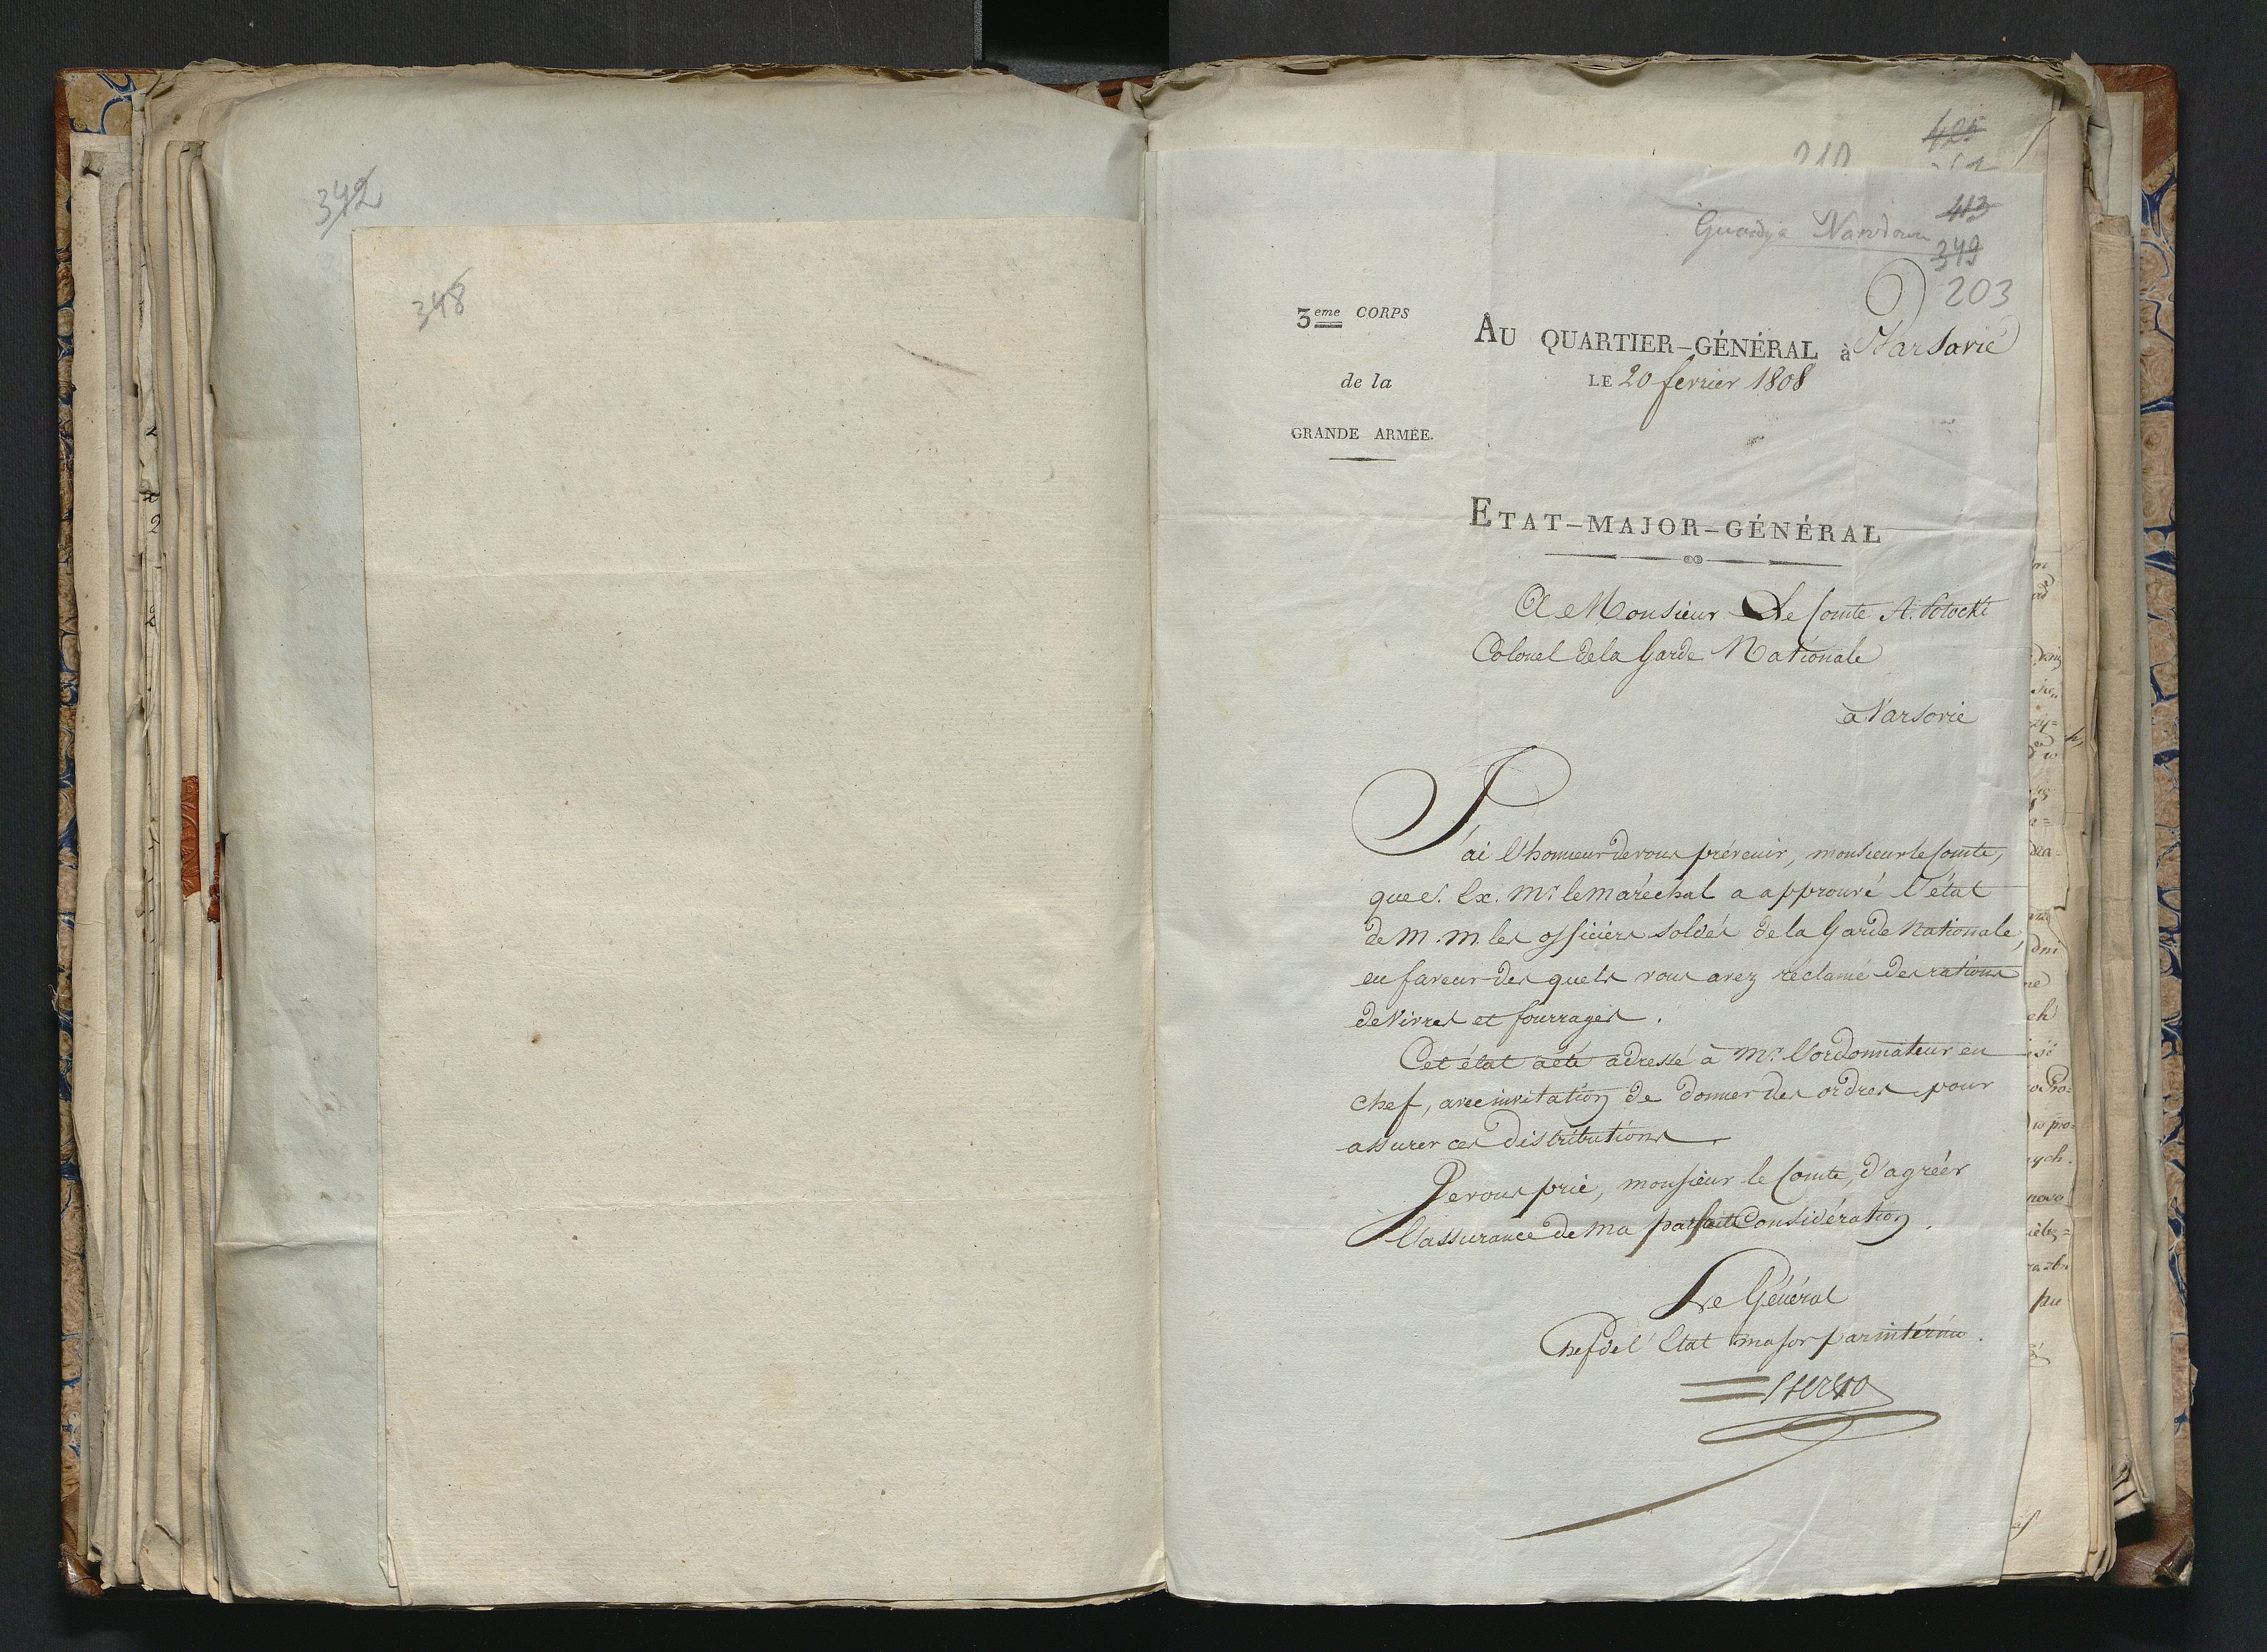 342
348
425
413
Gwardya Narodowa
349
203
3eme CORPS
de la
GRANDE ARMÉE.
AU QUARTIER-GÉNÉRAL à Varsovie
LE 20 fevrier 1808
ETAT-MAJOR-GÉNÉRAL
A Monsieur Le Comte A. Potocki
Colonel de la Garde Nationale
à Varsovie
J'ai l'honneur de vous prévenir, monsieur le Comte,
que S. Ex. Mr. le Maréchal a approuvé l'état
de M. M. les officiers soldés de la Garde Nationale,
en faveur des quels vous avez réclamé des rations
de Vivres et fourrages.
Cet état a été adressé à Mr. l'ordonnateur en
chef, avec invitation de donner des ordres pour
assurer ces distributions.
Je vous prie, monsieur le Comte, d'agréer
l'assurance de ma parfait Considération.
Le Général
Chef de l'Etat major par intérim.